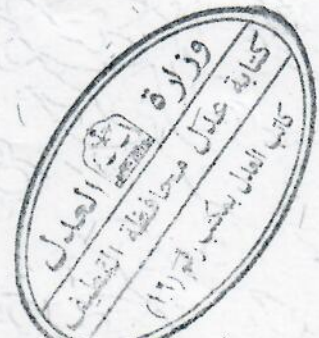 وزارة العدل
كتابة عدل محافظة القطيف
كاتب العدل بمكتب رقم (١٦)